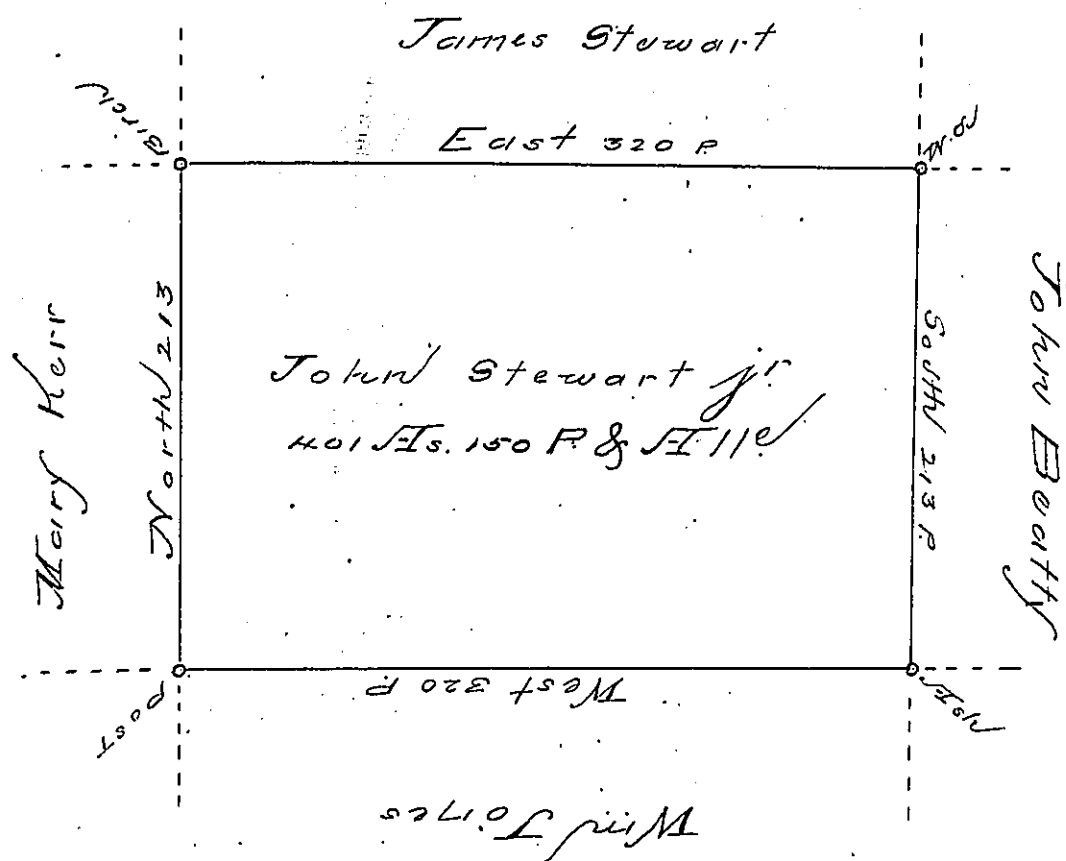 James Stewart
Birch
W.O.
East 320 P.
Mary Kerr
North 213
John Stewart jr.
401 As. 150 P. & Alle
South 213 P.
John Beatty
Post
West 320 P.
Ash
Wm Joines